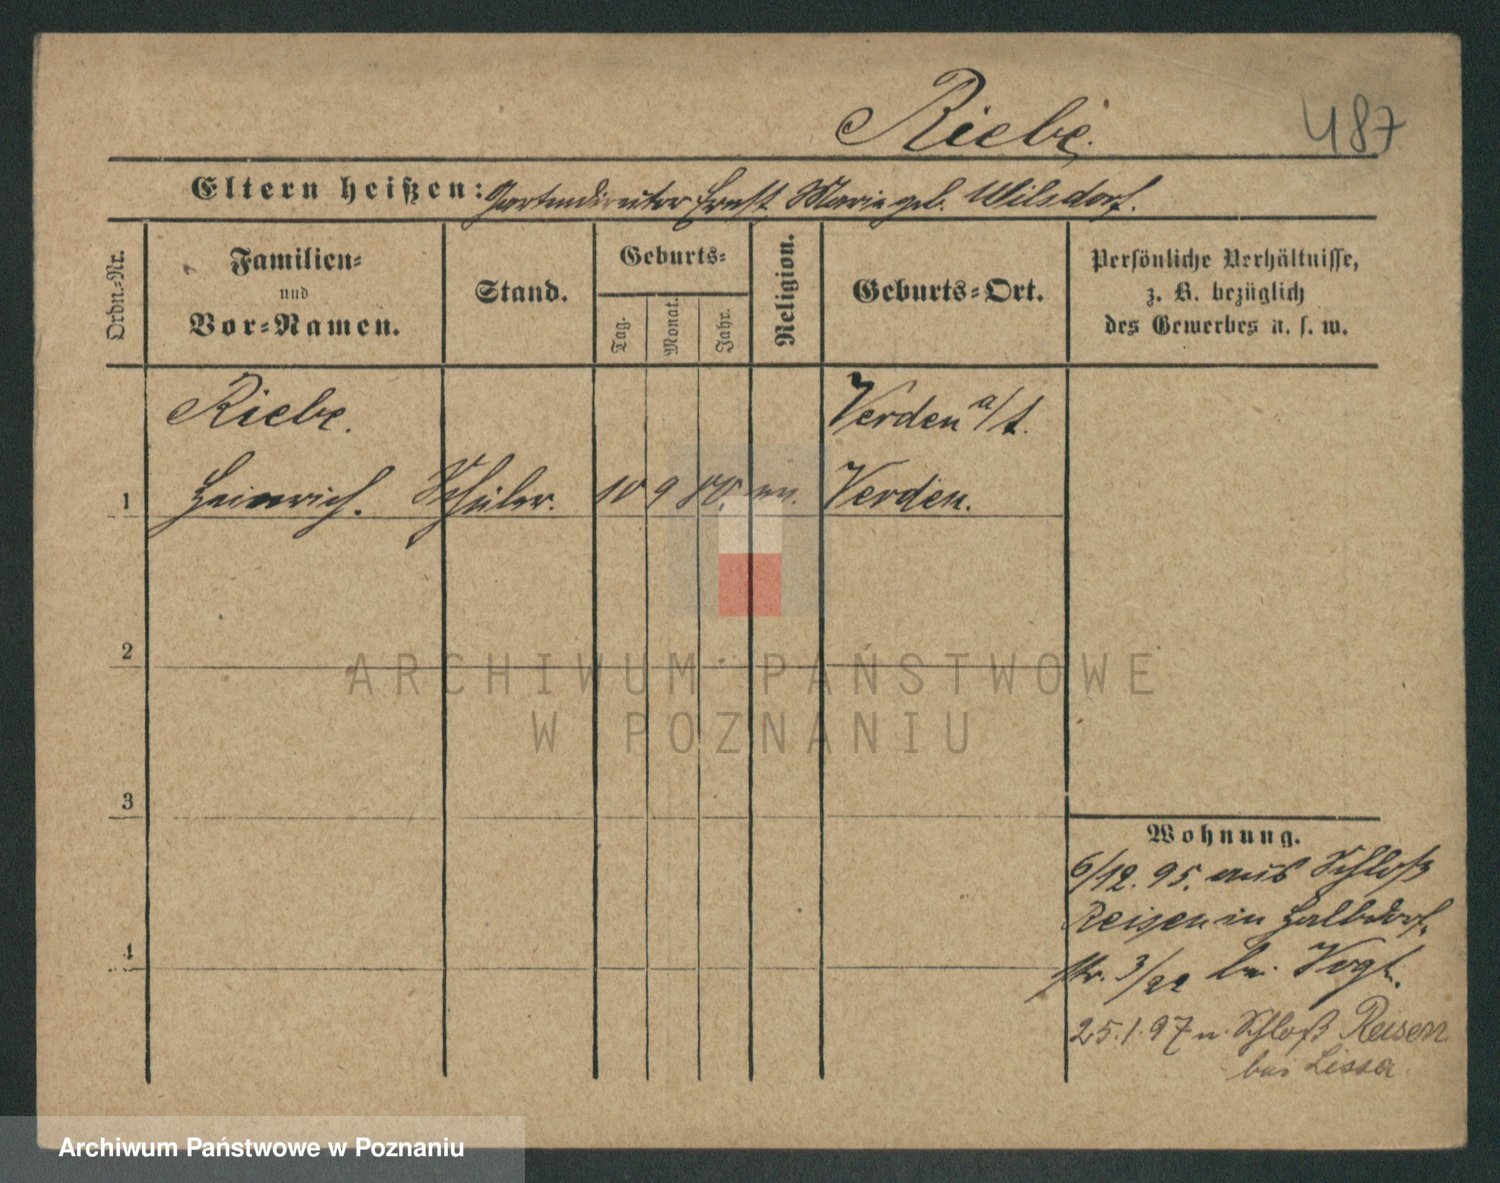 Riebe.
487
Eltern heißen: Gartendirektor Ernst, Marie geb. Wilsdorf.
Ordn.-Nr.
Familien-
und
Vor-Namen.
Stand.
Geburts-
Tag.
Monat.
Jahr.
Religion.
Geburts-Ort.
Persönliche Verhältnisse,
z. B. bezüglich
des Gewerbes u. s. w.
Riebe.
Verden a/
1 Heinrich. Schüler. 10 9 80. ev. Verden.
2
ARCHIWUM PAŃSTWOWE
W POZNANIU
3
Wohnung.
6/12. 95. aus Schloß
Reisen in Halbdorf-
str. 3/22 bei Vogt.
4
25.1.97 n. Schloß Reisen
bei Lissa.
Archiwum Państwowe w Poznaniu